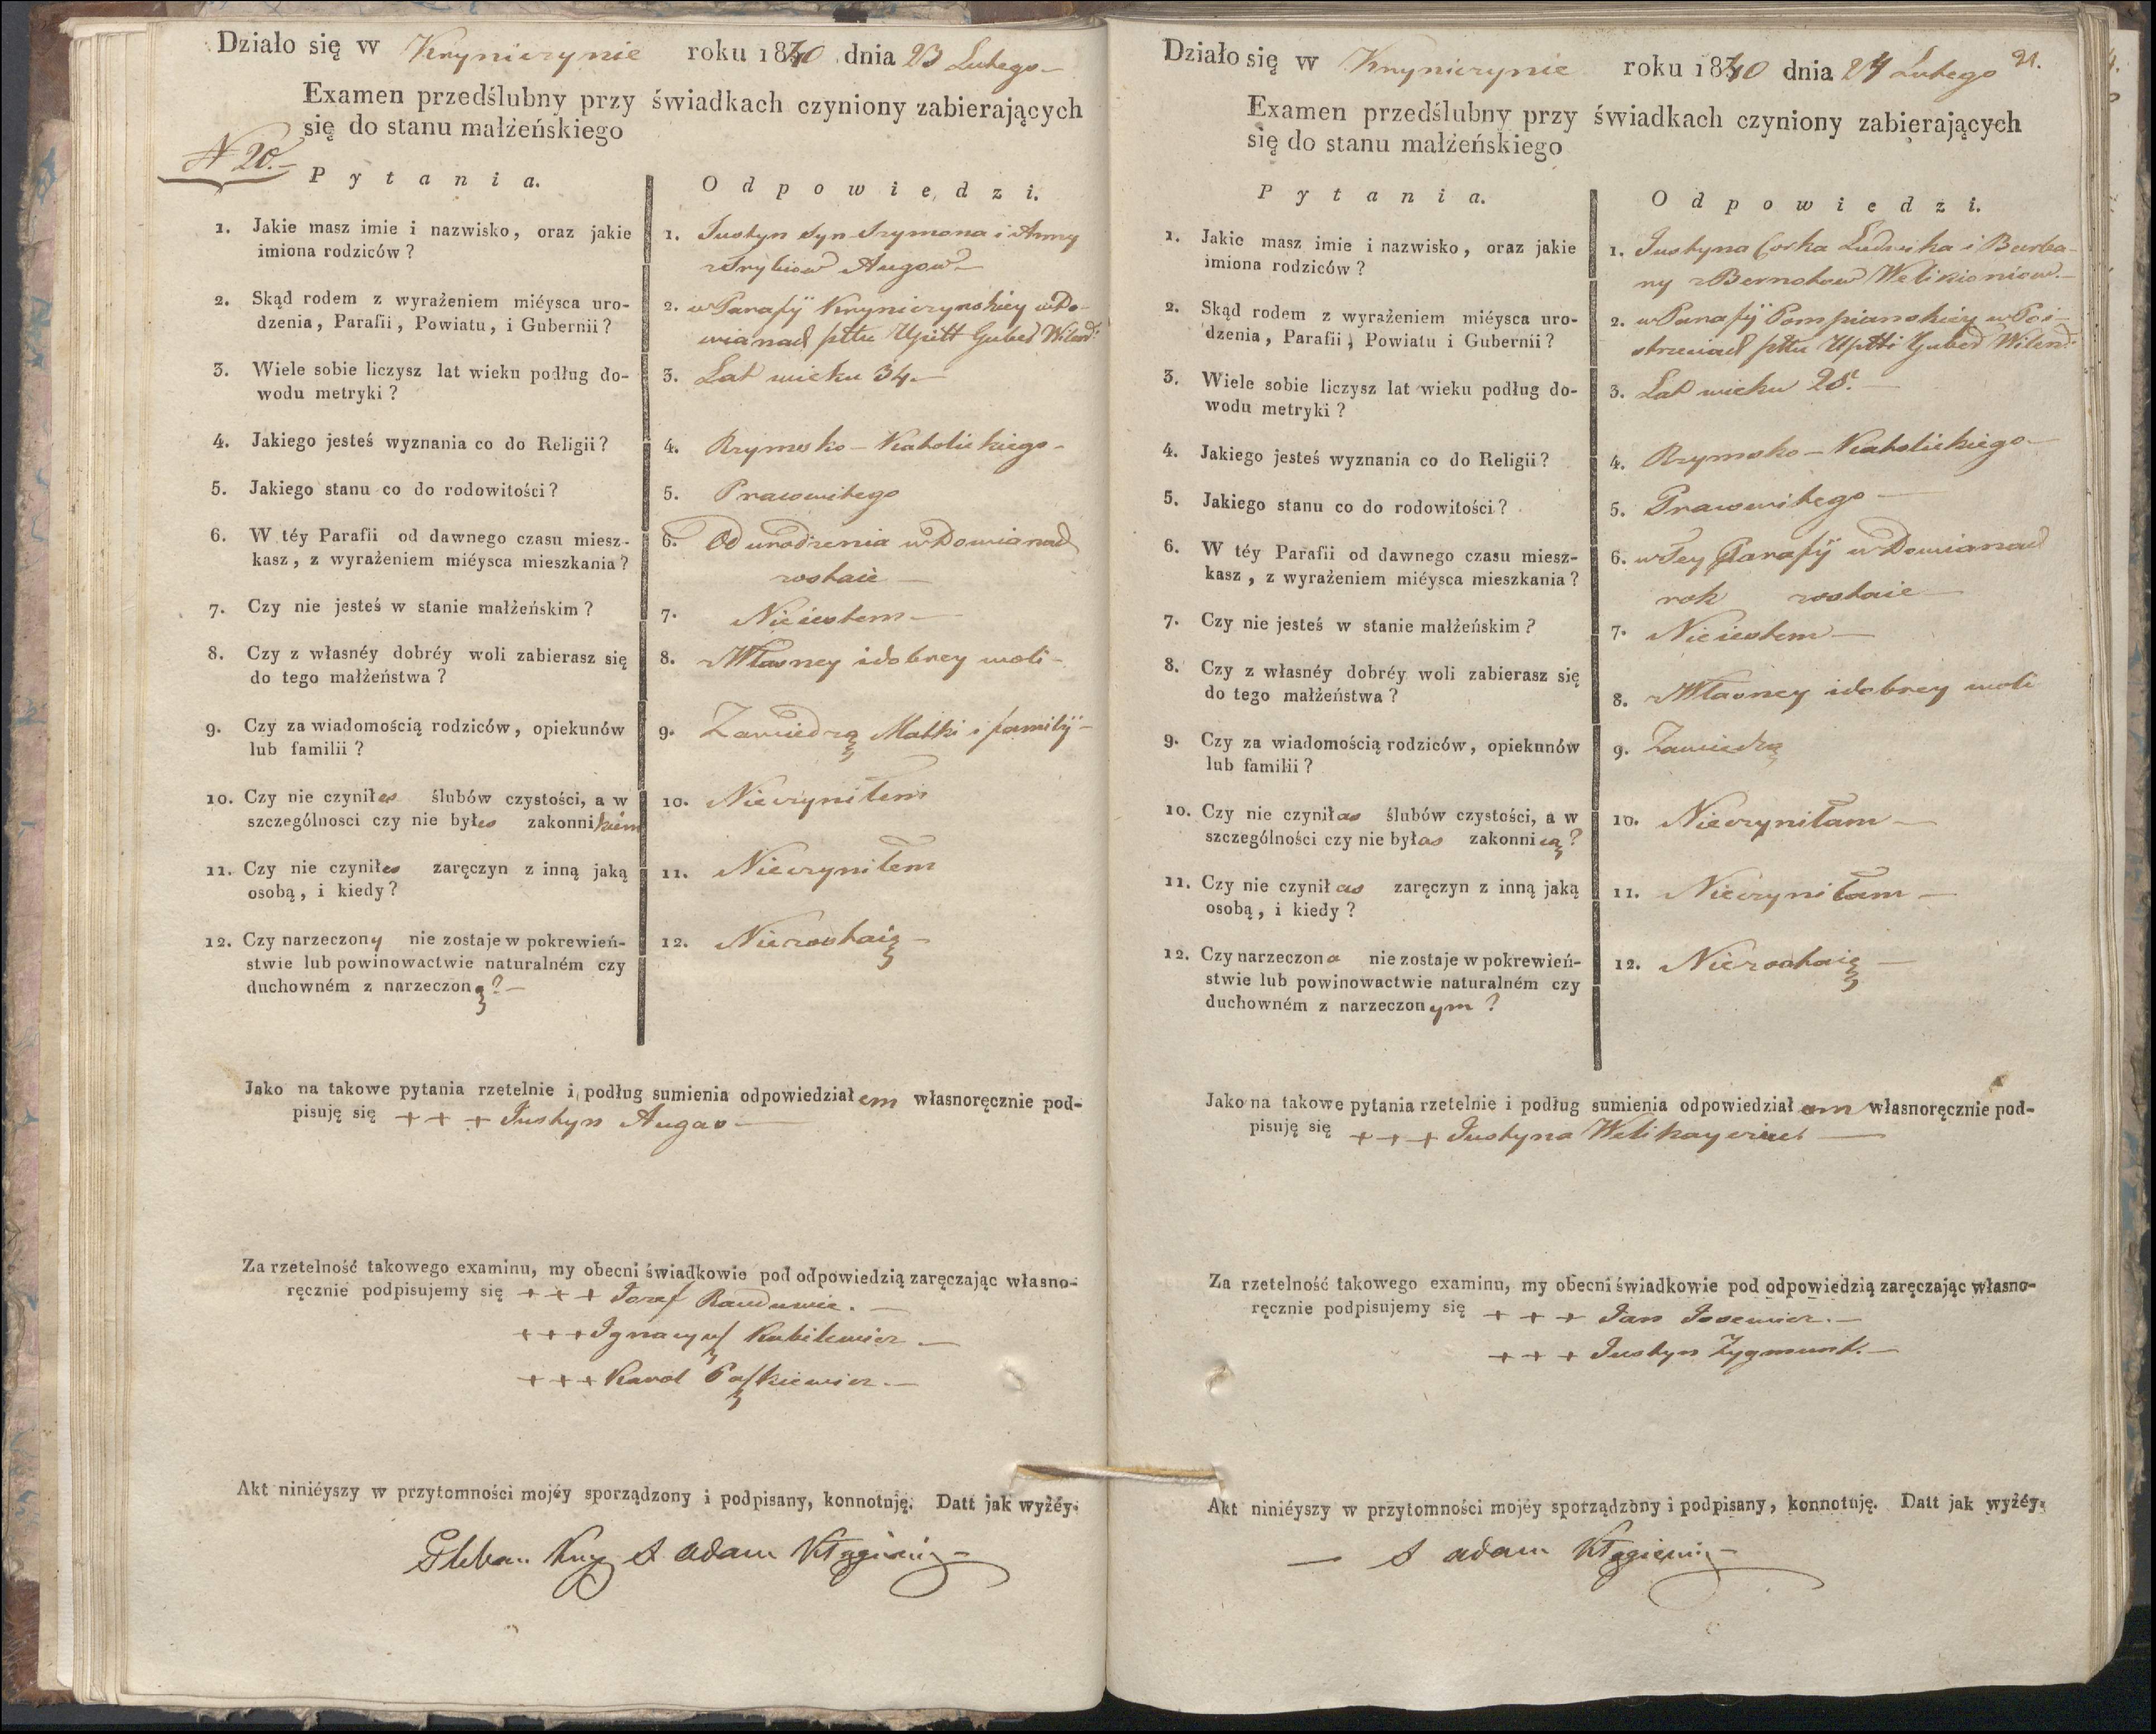 Działo się w Kryniczynie roku 1840 dnia 23 Lutego
Examen przedślubny przy świadkach czyniony zabierających
się do stanu małżeńskiego
N 20.
Pytania.
Odpowiedzi.
1. Jakie masz imie i nazwisko, oraz jakie
imiona rodziców?
1. Justyn Syn Szymona i Anny
Augow
2. Skąd rodem z wyrażeniem miéysca uro-
dzenia, Parafii, Powiatu, i Gubernii?
2. w Parafij Kryniczynskiey w Do-
wianach pttu Upitt Guber Wilens:
3. Wiele sobie liczysz lat wieku podług do-
wodu metryki?
3. Lat wieku 34
4. Jakiego jesteś wyznania co do Religii?
4. Rzymsko-Katolickiego
5. Jakiego stanu co do rodowitości?
5. Prawowitego
6. W téy Parafii od dawnego czasu miesz-
kasz, z wyrażeniem miéysca mieszkania?
6. Od urodzenia w Dowianach
zostaie
7. Czy nie jesteś w stanie małżeńskim?
7. Nieiestem
8. Czy z własnéy dobréy woli zabierasz się
do tego małżeństwa?
8. z Własney i dobrey woli
9. Czy za wiadomością rodziców, opiekunów
lub familii?
9. Zawiedzą Matki i familij
10. Czy nie czyniłes ślubów czystości, a w
szczególnosci czy nie byłes zakonnikiem
10. Nieczyniłem
11. Czy nie czyniłes zaręczyn z inną jaką
osobą, i kiedy?
11. Nieczyniłem
12. Czy narzeczony nie zostaje w pokrewień-
stwie lub powinowactwie naturalném czy
duchowném z narzeczoną?
12. Niezostaię
Jako na takowe pytania rzetelnie i podług sumienia odpowiedziałem własnoręcznie pod-
pisuję się + + + Justyn Augas
Za rzetelność takowego examinu, my obecni świadkowie pod odpowiedzią zaręczając własno-
ręcznie podpisujemy się + + + Jozef
+ + + Ignacy Kubilewicz
+ + + Karol Paszkiewicz
Akt niniéyszy w przytomności mojéy sporządzony i podpisany, konnotuję. Datt jak wyżéy.
Pleban Kry X Adam
Działo się w Krynicrynie roku 1840 dnia 24 Lutego 21.
Examen przedślubny przy świadkach czyniony zabierających
się do stanu małżeńskiego
Pytania.
Odpowiedzi.
1. Jakie masz imie i nazwisko, oraz jakie
imiona rodziców?
1. Justyna Corka Ludwika i Barba-
ry z Bernotow Welikioniow
2. Skąd rodem z wyrażeniem miéysca uro-
dzenia, Parafii, Powiatu i Gubernii?
2. w Parafij Pompianskiey w Poi-
strzeciach pttu Upitti Guber Wilens:
3. Wiele sobie liczysz lat wieku podług do-
wodu metryki?
3. Lat wieku 28.
4. Jakiego jesteś wyznania co do Religii?
4. Rzymsko-Katolickiego
5. Jakiego stanu co do rodowitości?
5. Prawowitego
6. W téy Parafii od dawnego czasu miesz-
kasz, z wyrażeniem miéysca mieszkania?
6. w Tey Parafij w Dowianach
rok zostaie
7. Czy nie jesteś w stanie małżeńskim?
7. Nieiestem
8. Czy z własnéy dobréy woli zabierasz się
do tego małżeństwa?
8. z Własney i dobrey woli
9. Czy za wiadomością rodziców, opiekunów
lub familii?
9. Zawiedzą
10. Czy nie czyniłas ślubów czystości, a w
szczególności czy nie byłas zakonnicą?
10. Nieczyniłam
11. Czy nie czyniłas zaręczyn z inną jaką
osobą, i kiedy?
11. Nieczyniłam
12. Czy narzeczona nie zostaje w pokrewień-
stwie lub powinowactwie naturalném czy
duchowném z narzeczonym?
12. Niezostaię
Jako na takowe pytania rzetelnie i podług sumienia odpowiedziałam własnoręcznie pod-
pisuję się + + + Justyna
Za rzetelność takowego examinu, my obecni świadkowie pod odpowiedzią zaręczając własno-
ręcznie podpisujemy się + + + Jan Josewicz.
+ + + Justyn Zygmunt.
Akt niniéyszy w przytomności mojéy sporządzony i podpisany, konnotuję. Datt jak wyżéy.
X Adam